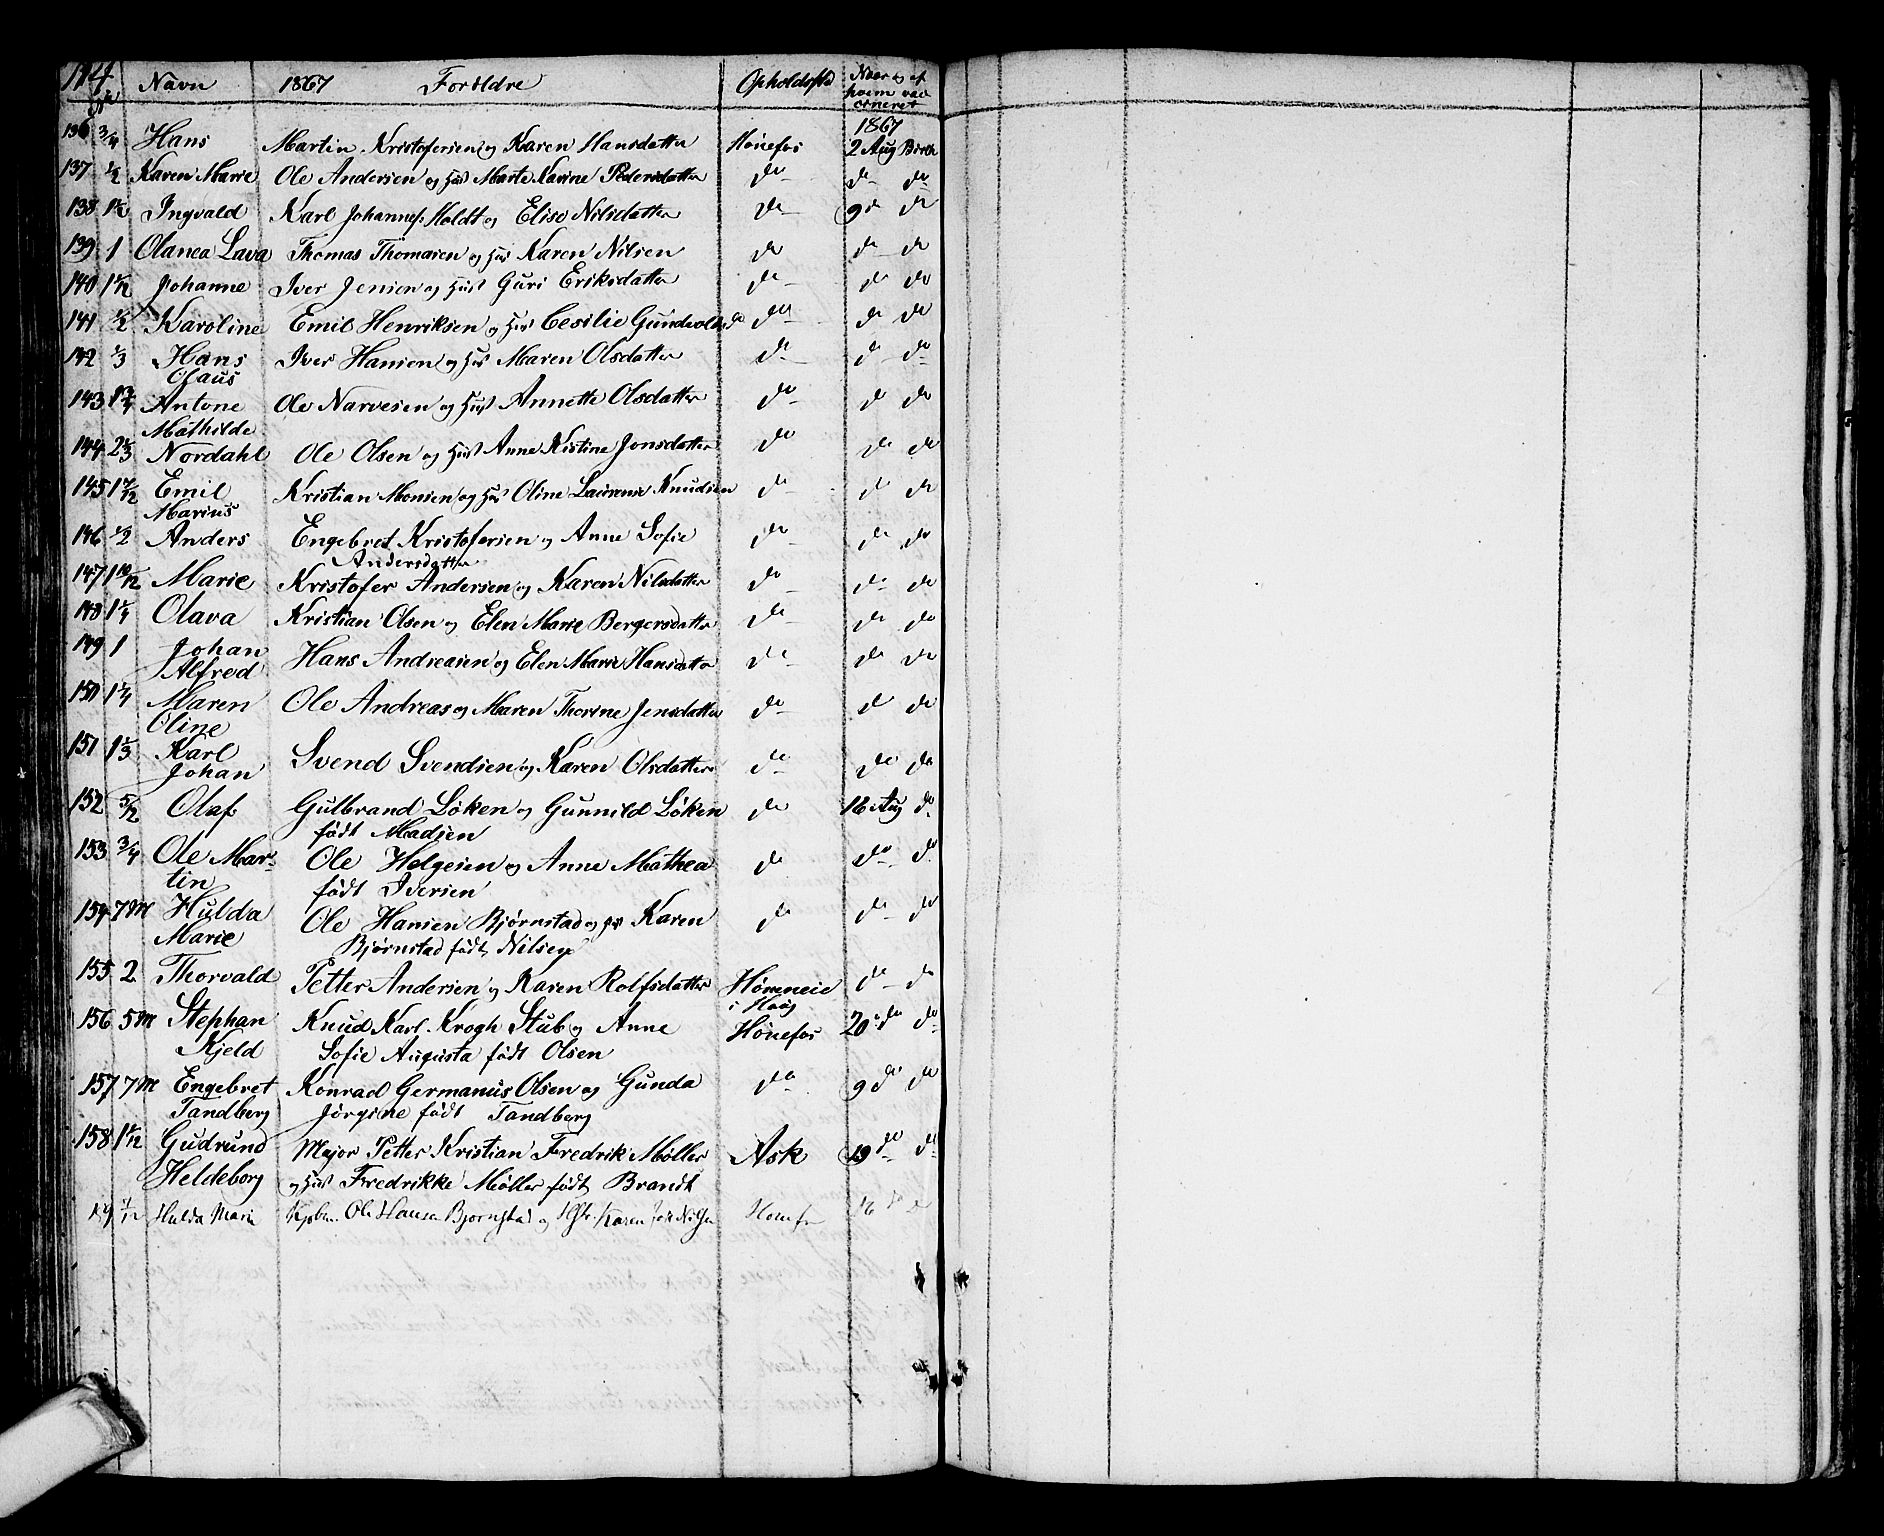 174 Navn 1867 Forældre Opholdssted Naar og af
hvem vac
cineret
136 3/4 Hans Martin Kristofersen og Karen Hansdatter Hønefos 1867 2 Aug Bireh
137 1/2 Karen Marie Ole Andersen og Hus Marte Karine Pedersdatter do do do
138 1 1/2 Ingvald Karl Johannes. Holdt og Elise Nilsdatter do 9 do do
139 1 Olanea Lava Thomas Thomasen og Hus Karen Nilsen do do do
140 1 1/2 Johanne Iver Jensen og Hust Guri Eriksdatter do do do
141 1/2 Karoline Emil Henriksen og Hus Cesilie Gundvolds do do do
142 1/3 Hans Iver Hansen og Hus Maren Olsdatter do do do
Olaus
143 1 3/4 Antone Ole Narvesen og Hust Annette Olsdatter do do do
Mathilde
144 2 2/3 Nordahl Ole Olsen og Hust Anne Kistine Jonsdatter do do do
145 1 7/12 Emil Kristian Monsen og Hus Oline Laurense Knudsen do do do
Marius
146 1/2 Anders Engebret Kristofersen og Anne Sofie do do do
Andersdatter
147 1 10/12 Marie Kristofer Andersen og Karen Nilsdatter do do do
148 1 1/4 Olava Kristian Olsen og Elen Marie Bergersdatter do do do
149 1 Johan Hans Andreasen og Elen Marie Hansdatter do do do
Alfred
150 1 1/4 Maren Ole Andreas og Maren Thorine Jensdatter do do do
Oline
151 1 1/3 Karl Svend Svendsen og Karen Olsdatter do do do
Johan
152 5/12 Olaf Gulbrand Løken og Gunnild Løken do 16 Aug do
født Madsen
153 3/4 Ole Mar- Ole Helgesen og Anne Mathea do do do
tin født Iversen
154 7 M Hulda Ole Hansen Bjørnstad og Hus Karen do do do
Marie Bjørnstad født Nilsen
155 2 Thorvald Petter Andersen og Karen Rolfsdatter do do
i Haug
156 5 M Stephan Knud Karl Krogh Stub og Anne Hønefos 20 do do
Kjeld Sofie Augusta født Olsen
157 7 M Engebret Konrad Germanus Olsen og Gunda do 9 do do
Tandberg Jørgine født Tandberg
158 1 1/12 Gudrund Major Petter Kristian Fredrik Møller Ask 19 do do
Heldeborg og Hus Fredrikke Møller født Brandt
159 7/12 Hulda Marie Kjøbm. Ole Hansen Bjørnstad og Hstr. Karen født Nilsen Hønefos 16 do do